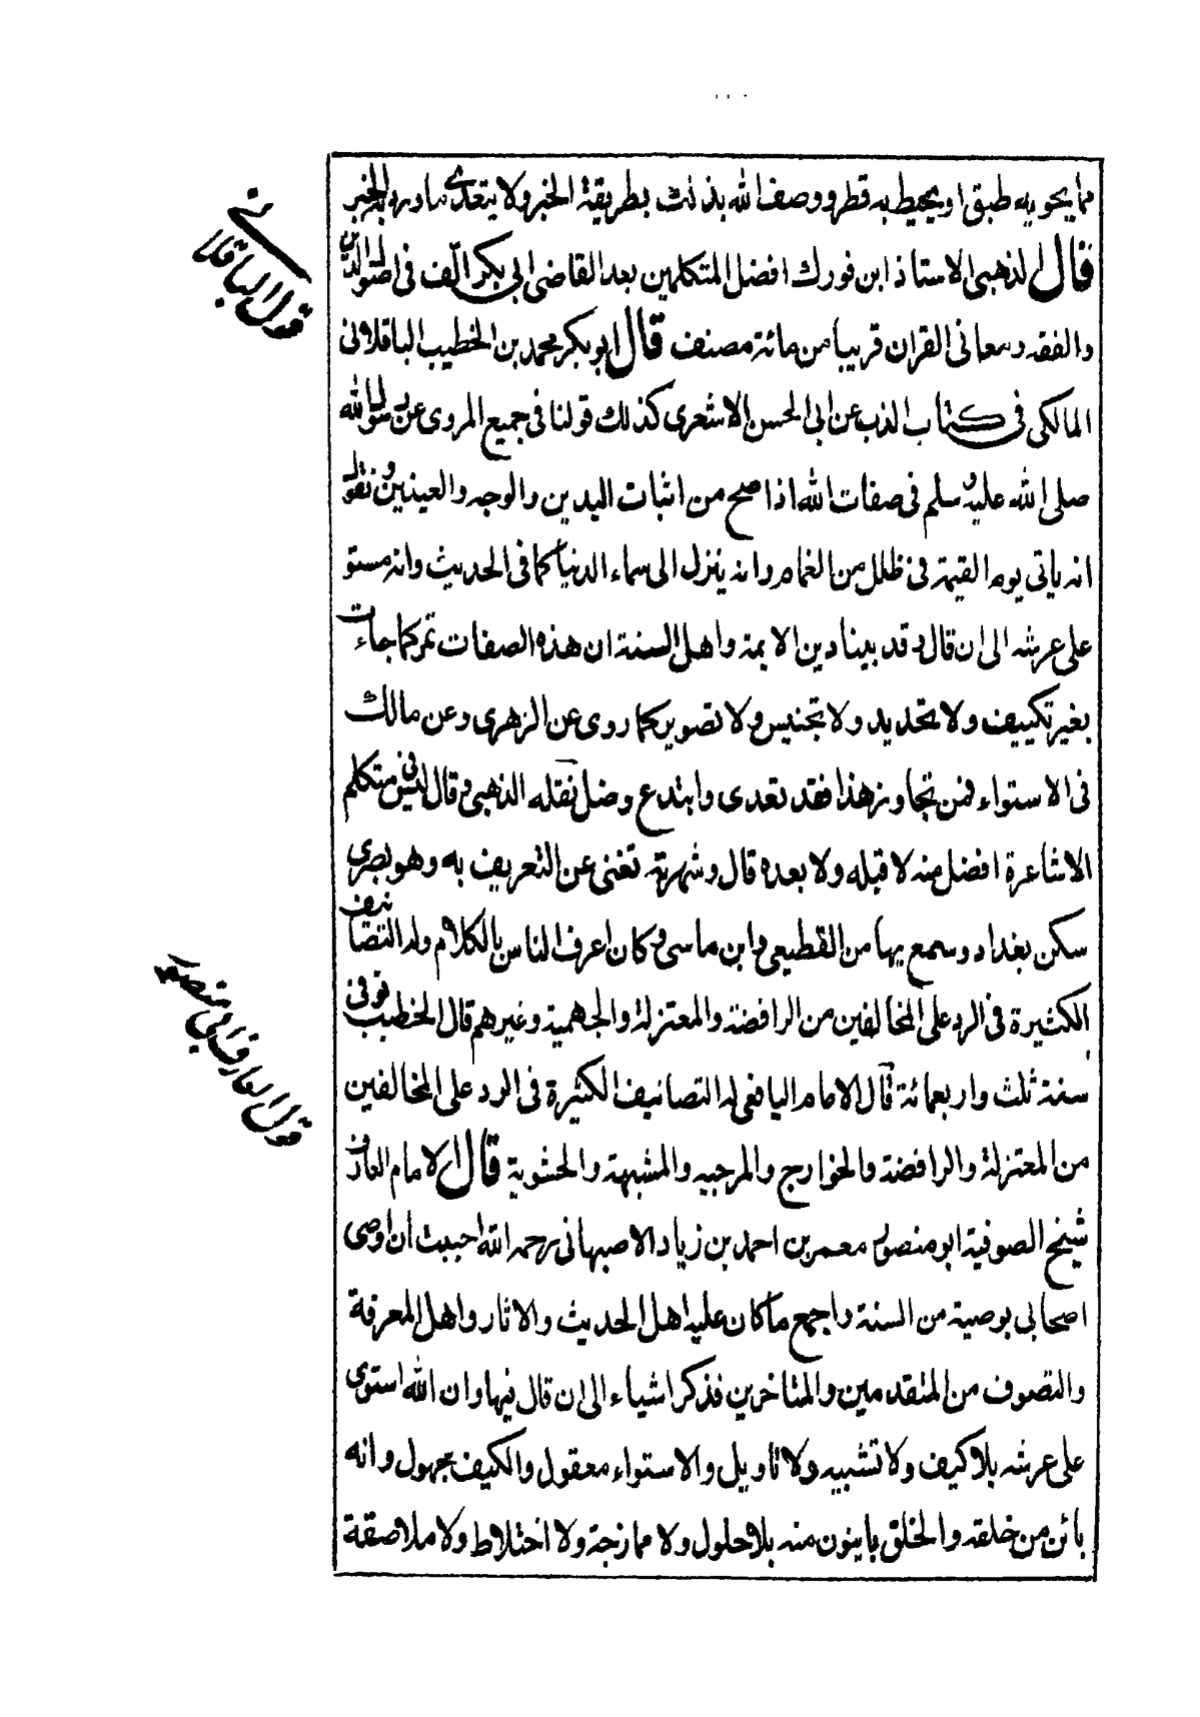 مما يحويه طبق او يحيط به قطر ووصف الله بذلك بطريقة الخبر ولا يتعدى ما ورد به الخبر
قال الذهبى الاستاذ ابن فورك افضل المتكلمين بعد القاضى ابى بكر الّف فى اصول الدين
والفقه ومعانى القران قريبا من مائة مصنف قال ابو بكر محمد بن الخطيب الباقلانى
المالكى فى كتاب الذب عن ابى الحسن الاشعرى كذلك قولنا فى جميع المروى عن رسول الله
صلى الله عليه وسلم فى صفات الله اذا صح من اثبات اليدين والوجه والعينين ونقول
انه ياتى يوم القيمة فى ظلل من الغمام وانه ينزل الى سماء الدنيا كما فى الحديث وانه مستو
على عرشه الى ان قال وقد بينا دين الايمة واهل السنة ان هذه الصفات تمر كما جاءت
بغير تكييف ولا تحديد ولا تجنيس ولا تصوير كما روى عن الزهرى وعن مالك
فى الاستواء فمن تجاوز هذا فقد تعدى وابتدع وضل نقله الذهبى وقال ليس فى متكلم
الاشاعرة افضل منه لا قبله ولا بعده قال وشهرته تغنى عن التعريف به وهو بصرى
سكن بغداد وسمع بها من القطيعى وابن ماسى وكان اعرف الناس بالكلام وله التصانيف
الكثيرة فى الرد على المخالفين من الرافضة والمعتزلة والجهمية وغيرهم قال الخطيب توفى
سنة ثلث واربعمائة قال الامام اليافعى له التصانيف الكثيرة فى الرد على المخالفين
من المعتزلة والرافضة والخوارج والمرجيه والمشبهة والحشوية قال الامام العارف
شيخ الصوفية ابو منصور معمر بن احمد بن زياد الاصبهانى رحمه الله احببت ان اوصى
اصحابى بوصية من السنة واجمع ما كان عليه اهل الحديث والاثار واهل المعرفة
والتصوف من المتقدمين والمتاخرين فذكر اشياء الى ان قال فيها وان الله استوى
على عرشه بلا كيف ولا تشبيه ولا تاويل والاستواء معقول والكيف مجهول وانه
بائن من خلقه والخلق باينون منه بلا حلول ولا ممازجة ولا اختلاط ولا ملاصقة
قول الباقلانى
قول العارف ابى منصور